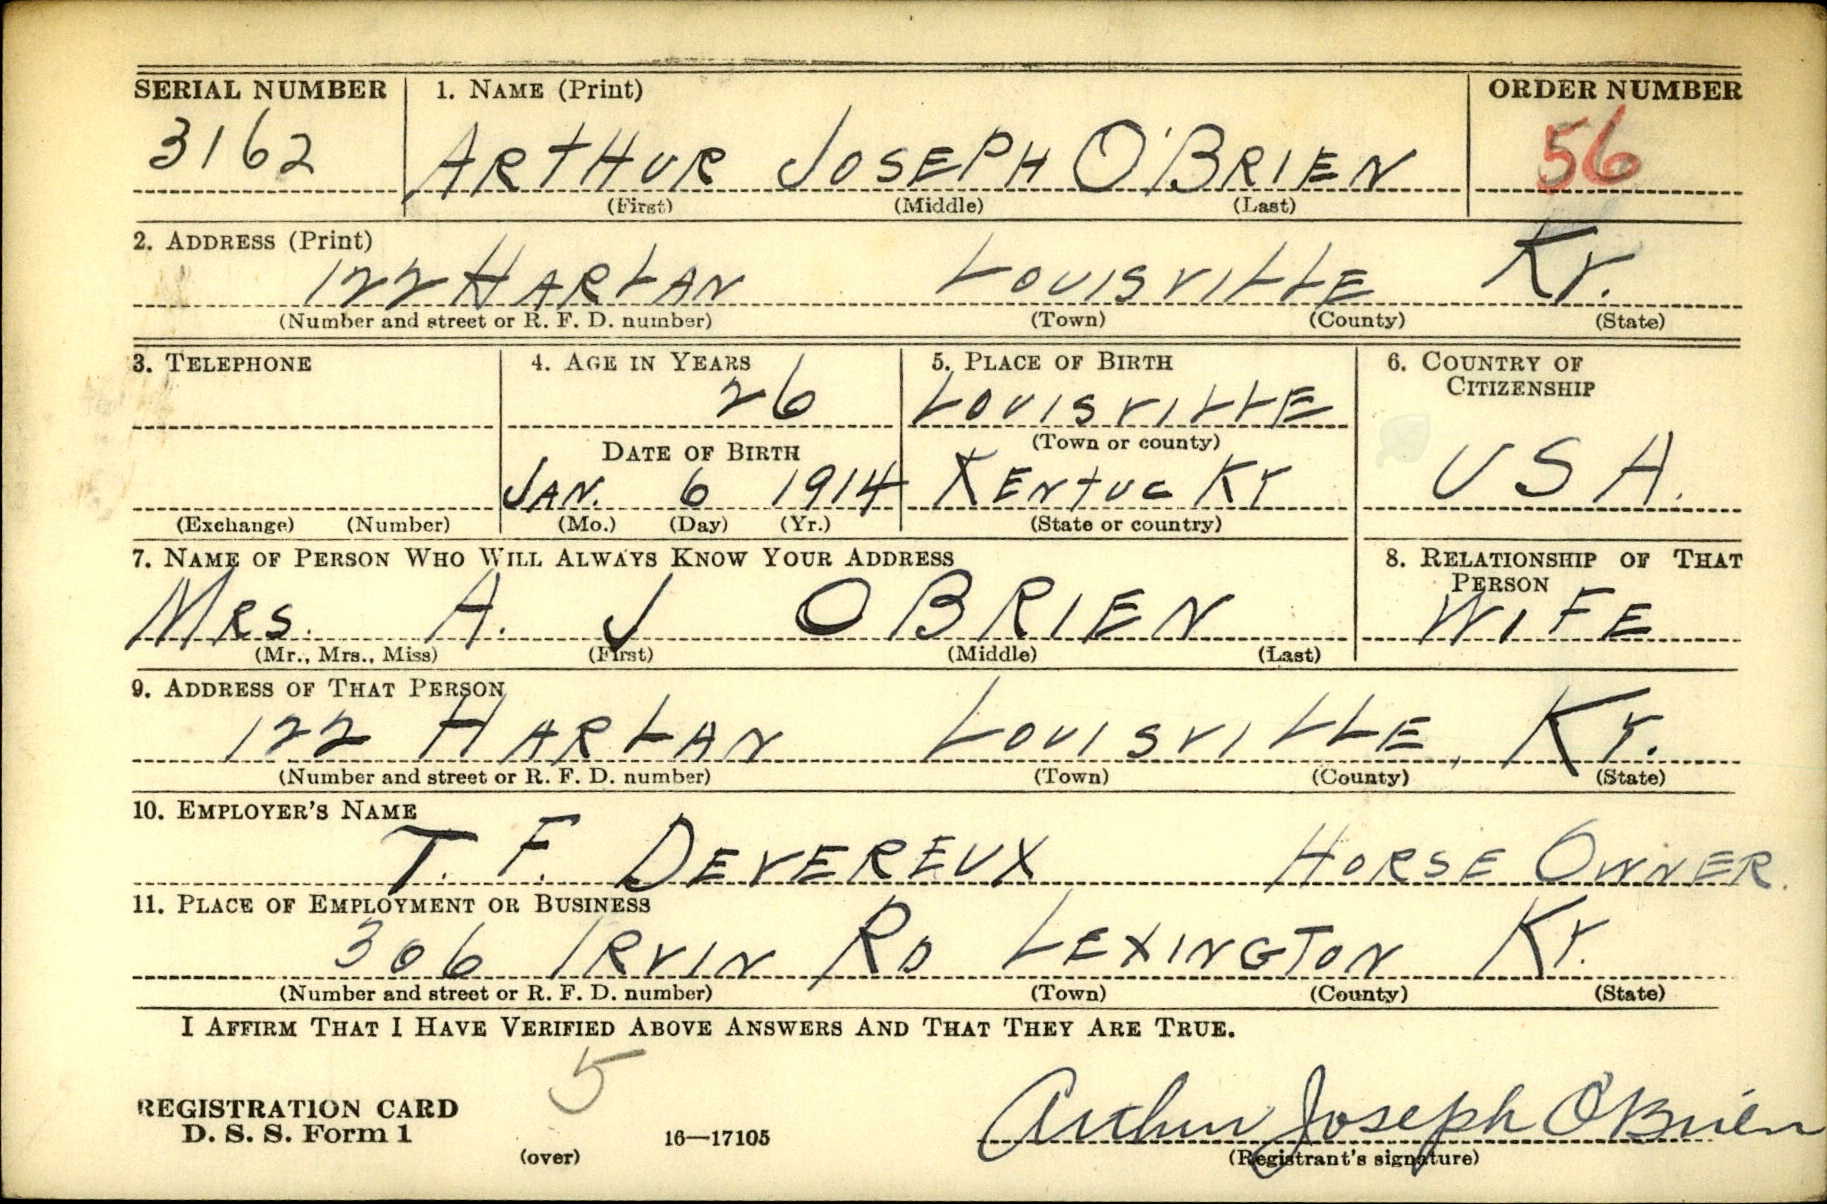 SERIAL NUMBER 1. NAME (Print) ORDER NUMBER
3162 ARTHUR JOSEPH O'BRIEN 56
(First) (Middle) (Last)
2. ADDRESS (Print)
122 HARLAN LOUISVILLE KY.
(Number and street or R. F. D. number) (Town) (County) (State)
3. TELEPHONE 4. AGE IN YEARS 5. PLACE OF BIRTH 6. COUNTRY OF
CITIZENSHIP
26 LOUISVILLE
(Town or county)
DATE OF BIRTH
JAN. 6 1914 KENTUCKY USA.
(Exchange) (Number) (Mo.) (Day) (Yr.) (State or country)
7. NAME OF PERSON WHO WILL ALWAYS KNOW YOUR ADDRESS 8. RELATIONSHIP OF THAT
PERSON
MRS. A. J OBRIEN WIFE
(Mr., Mrs., Miss) (First) (Middle) (Last)
9. ADDRESS OF THAT PERSON
122 HARLAN LOUISVILLE, KY.
(Number and street or R. F. D. number) (Town) (County) (State)
10. EMPLOYER'S NAME
T. F. DEVEREUX HORSE OWNER.
11. PLACE OF EMPLOYMENT OR BUSINESS
306 IRVIN RD LEXINGTON KY.
(Number and street or R. F. D. number) (Town) (County) (State)
I AFFIRM THAT I HAVE VERIFIED ABOVE ANSWERS AND THAT THEY ARE TRUE.
5
REGISTRATION CARD
D. S. S. Form 1
(over) 16—17105
Arthur Joseph O'Brien
(Registrant's signature)